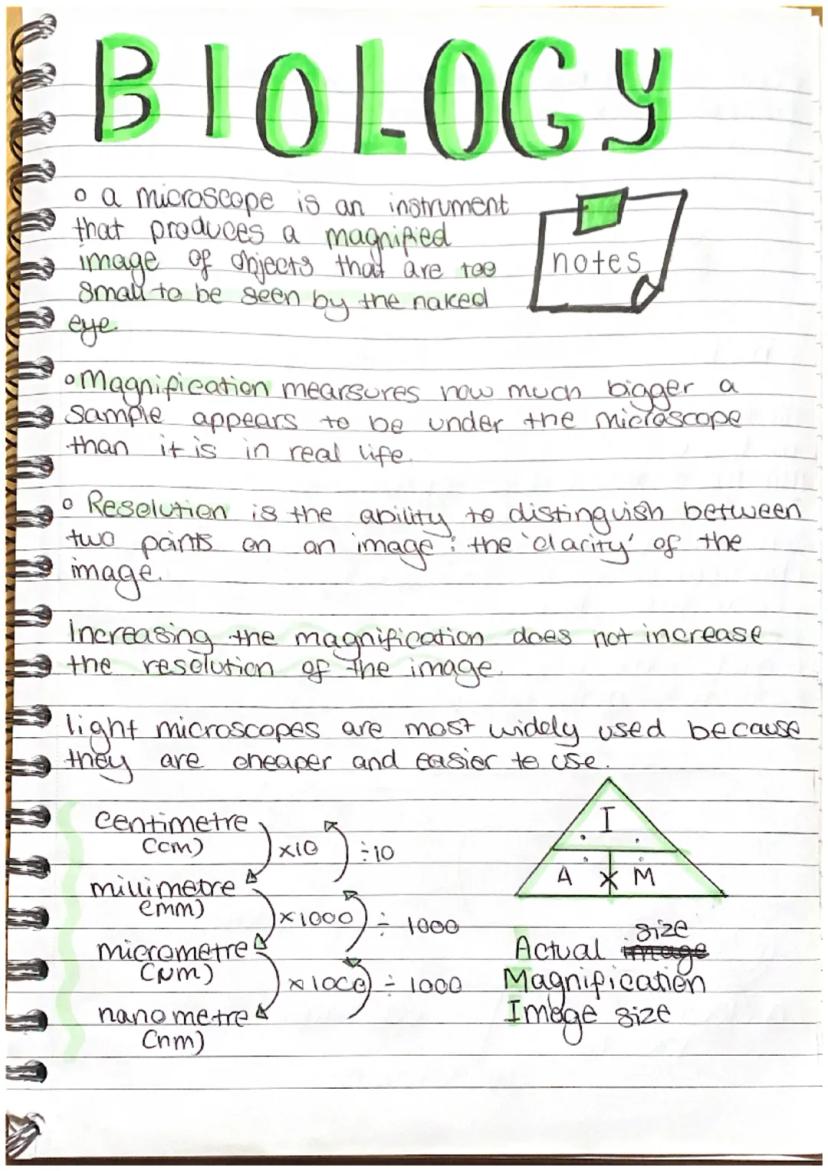 BIOLOGY
◦ a microscope is an instrument
that produces a magnified
image of objects that are too
small to be seen by the naked
eye.
notes
◦ Magnification mearsures how much bigger a
sample appears to be under the microscope
than it is in real life.
◦ Resolution is the ability to distinguish between
two points on an image : the 'clarity' of the
image.
Increasing the magnification does not increase
the resolution of the image.
light microscopes are most widely used because
they are cheaper and easier to use.
centimetre
(cm)
×10 ÷10
millimetre
(mm)
×1000 ÷ 1000
micrometre
(μm)
×1000 ÷ 1000
nanometre
(nm)
I
A × M
size
Actual image
Magnification
Image size